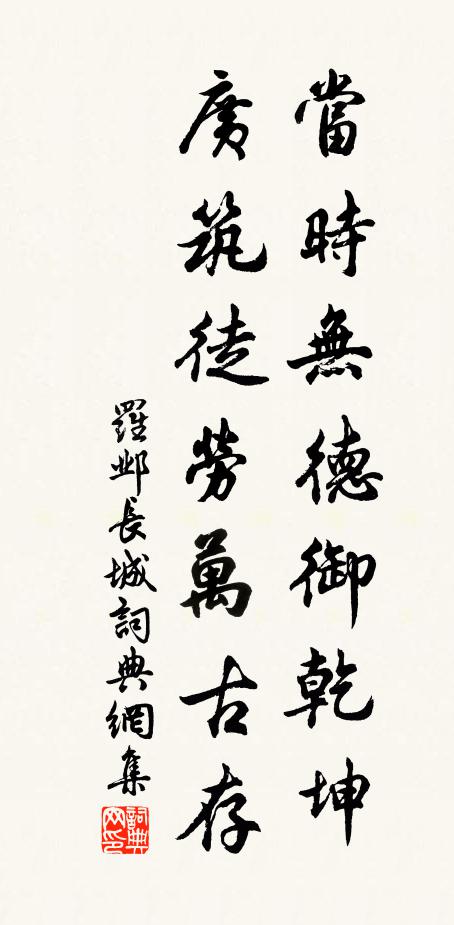 當時無德御乾坤
廣筑徒勞萬古存
羅邺長城詞典網集
詞典
网印